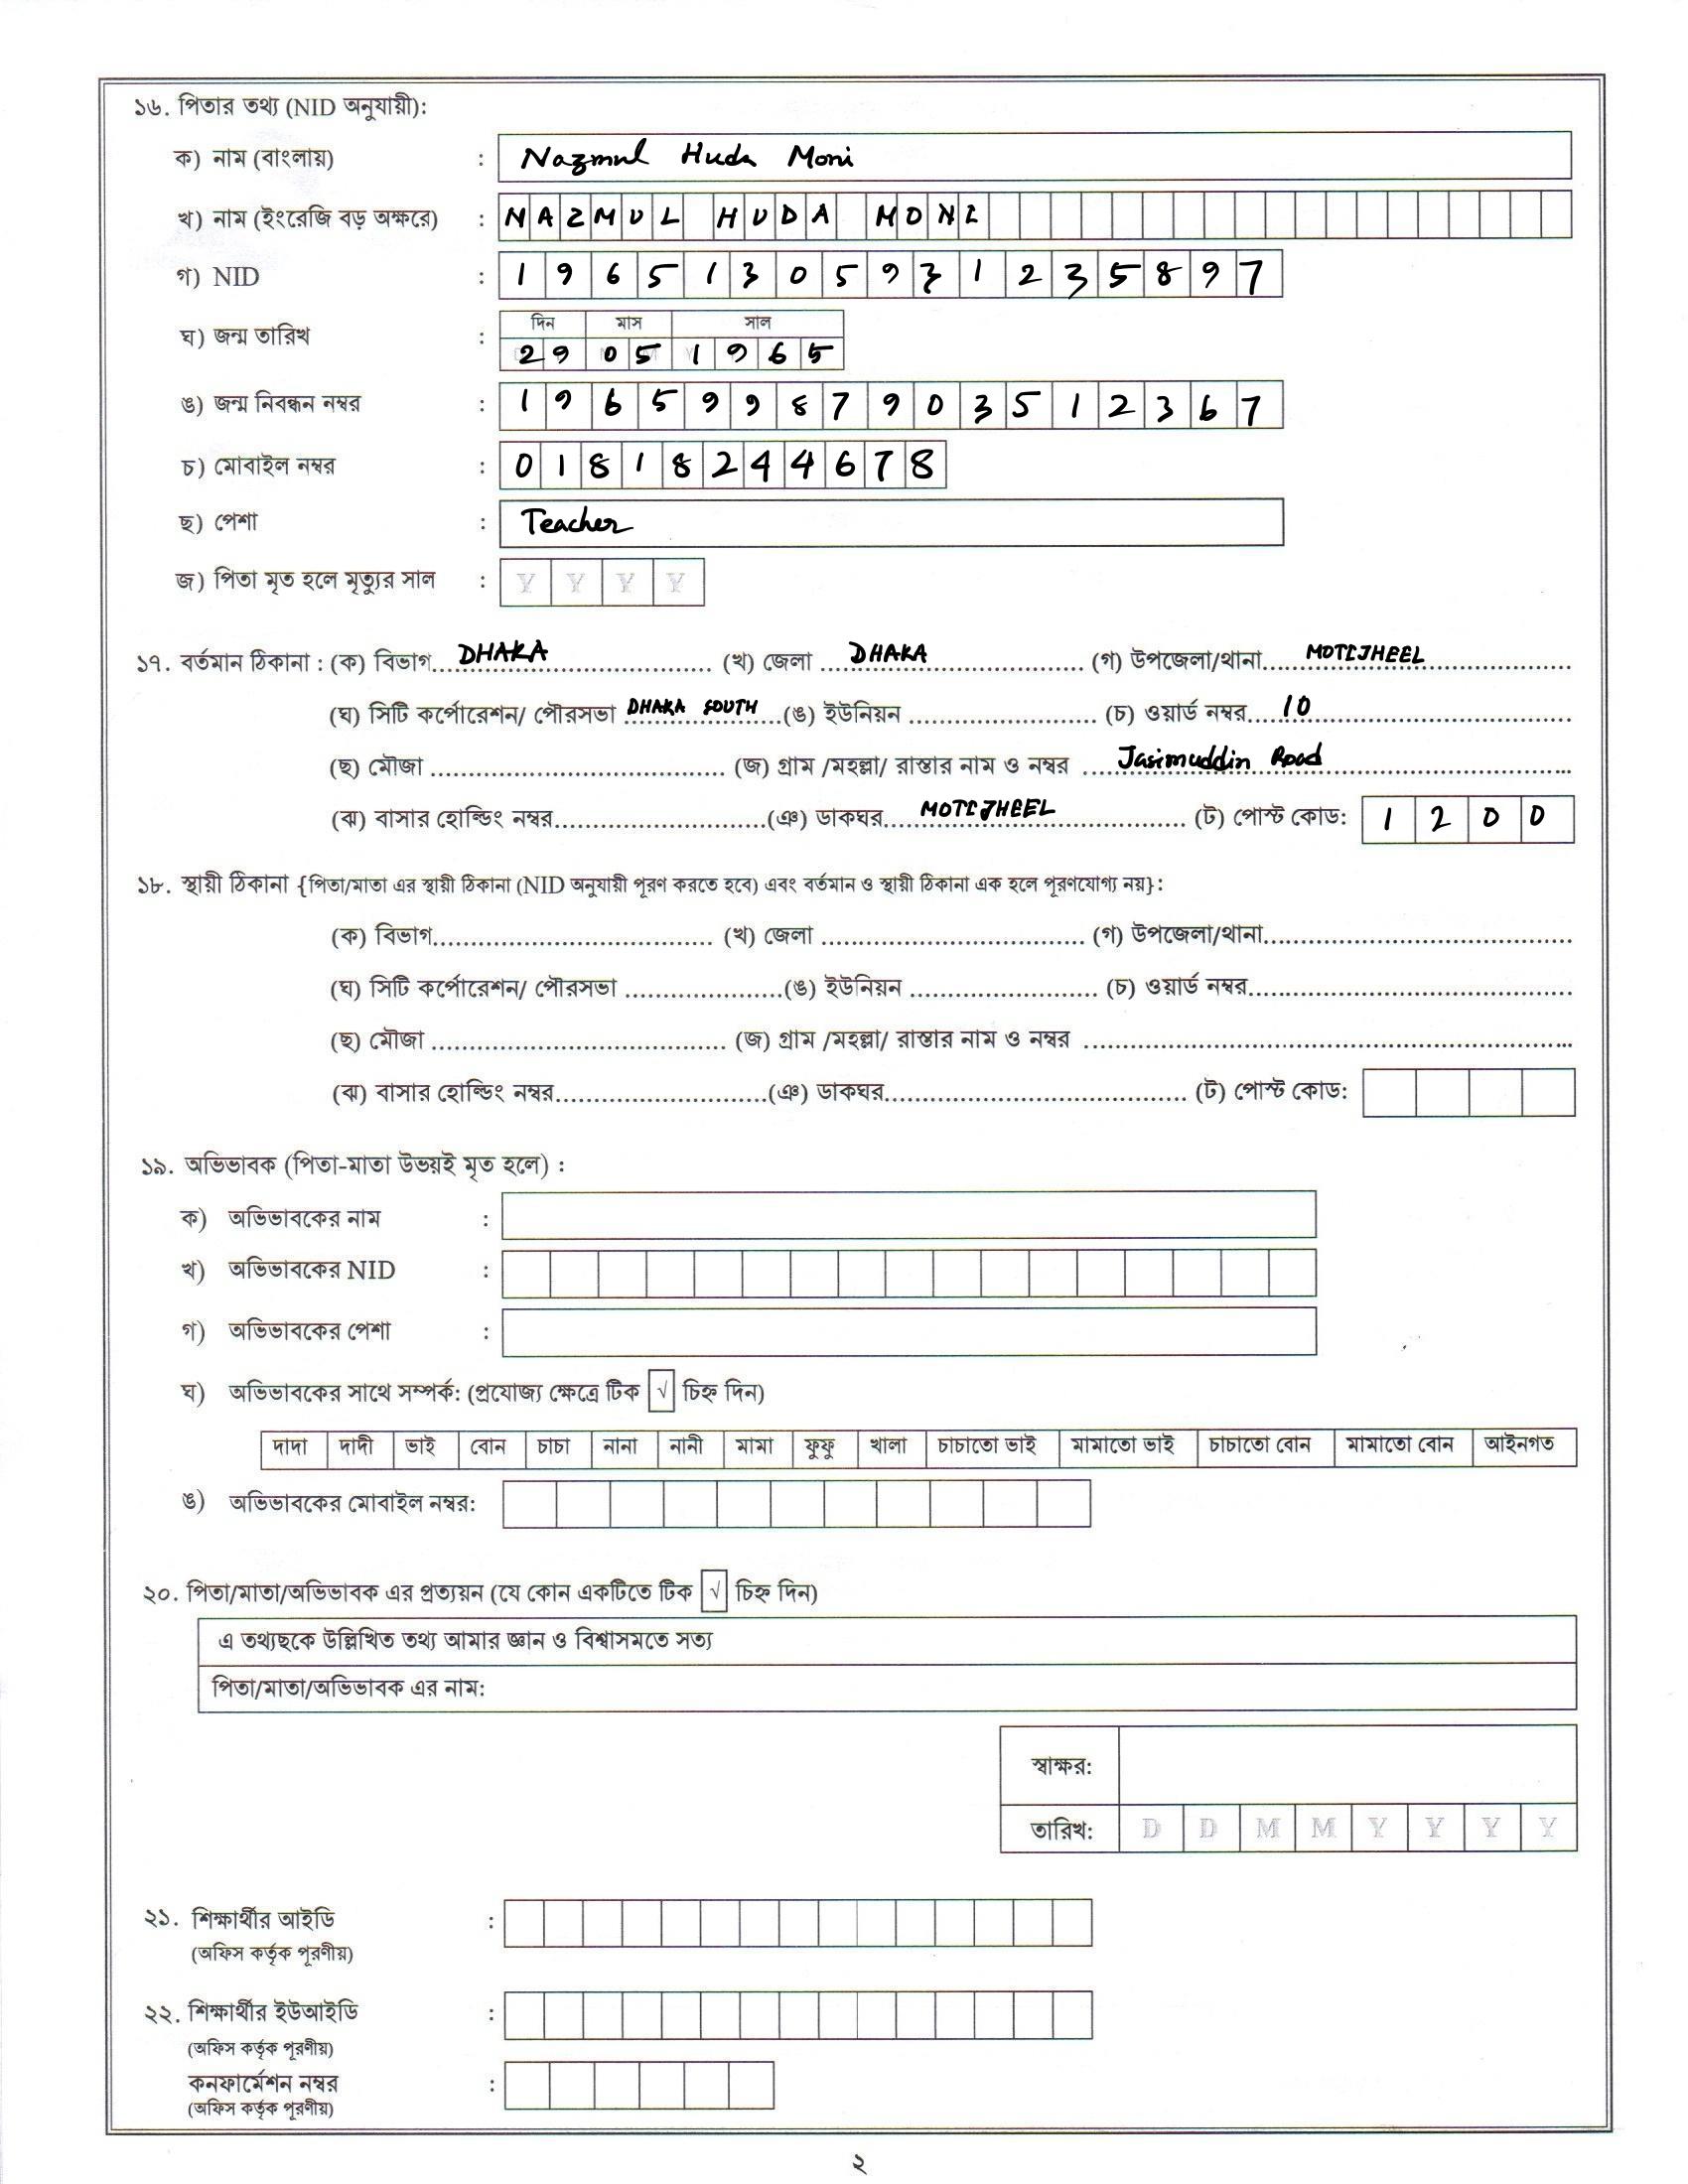 ১৬. পিতার তথ্য (NID অনুযায়ী):
ক) নাম (বাংলায়) : Nazmul Huda Moni
খ) নাম (ইংরেজি বড় অক্ষরে) : NAZMUL HUDA MONI
গ) NID : 19651305931235897
দিন মাস সাল
ঘ) জন্ম তারিখ : 29 05 1965
ঙ) জন্ম নিবন্ধন নম্বর : 19659987903512367
চ) মোবাইল নম্বর : 01818244678
ছ) পেশা : Teacher
জ) পিতা মৃত হলে মৃত্যুর সাল : Y Y Y Y
১৭. বর্তমান ঠিকানা : (ক) বিভাগ DHAKA (খ) জেলা DHAKA (গ) উপজেলা/থানা MOTIJHEEL
(ঘ) সিটি কর্পোরেশন/ পৌরসভা DHAKA SOUTH (ঙ) ইউনিয়ন (চ) ওয়ার্ড নম্বর 10
(ছ) মৌজা (জ) গ্রাম /মহল্লা/ রাস্তার নাম ও নম্বর Jasimuddin Road
(ঝ) বাসার হোল্ডিং নম্বর (ঞ) ডাকঘর MOTIJHEEL (ট) পোস্ট কোড: 1200
১৮. স্থায়ী ঠিকানা {পিতা/মাতা এর স্থায়ী ঠিকানা (NID অনুযায়ী পূরণ করতে হবে) এবং বর্তমান ও স্থায়ী ঠিকানা এক হলে পূরণযোগ্য নয়}:
(ক) বিভাগ (খ) জেলা (গ) উপজেলা/থানা
(ঘ) সিটি কর্পোরেশন/ পৌরসভা (ঙ) ইউনিয়ন (চ) ওয়ার্ড নম্বর
(ছ) মৌজা (জ) গ্রাম /মহল্লা/ রাস্তার নাম ও নম্বর
(ঝ) বাসার হোল্ডিং নম্বর (ঞ) ডাকঘর (ট) পোস্ট কোড:
১৯. অভিভাবক (পিতা-মাতা উভয়ই মৃত হলে) :
ক) অভিভাবকের নাম :
খ) অভিভাবকের NID :
গ) অভিভাবকের পেশা :
ঘ) অভিভাবকের সাথে সম্পর্ক: (প্রযোজ্য ক্ষেত্রে টিক √ চিহ্ন দিন)
দাদা দাদী ভাই বোন চাচা নানা নানী মামা ফুফু খালা চাচাতো ভাই মামাতো ভাই চাচাতো বোন মামাতো বোন আইনগত
ঙ) অভিভাবকের মোবাইল নম্বর:
২০. পিতা/মাতা/অভিভাবক এর প্রত্যয়ন (যে কোন একটিতে টিক √ চিহ্ন দিন)
এ তথ্যছকে উল্লিখিত তথ্য আমার জ্ঞান ও বিশ্বাসমতে সত্য
পিতা/মাতা/অভিভাবক এর নাম:
স্বাক্ষর:
তারিখ: D D M M Y Y Y Y
২১. শিক্ষার্থীর আইডি :
(অফিস কর্তৃক পূরণীয়)
২২. শিক্ষার্থীর ইউআইডি :
(অফিস কর্তৃক পূরণীয়)
কনফার্মেশন নম্বর :
(অফিস কর্তৃক পূরণীয়)
২